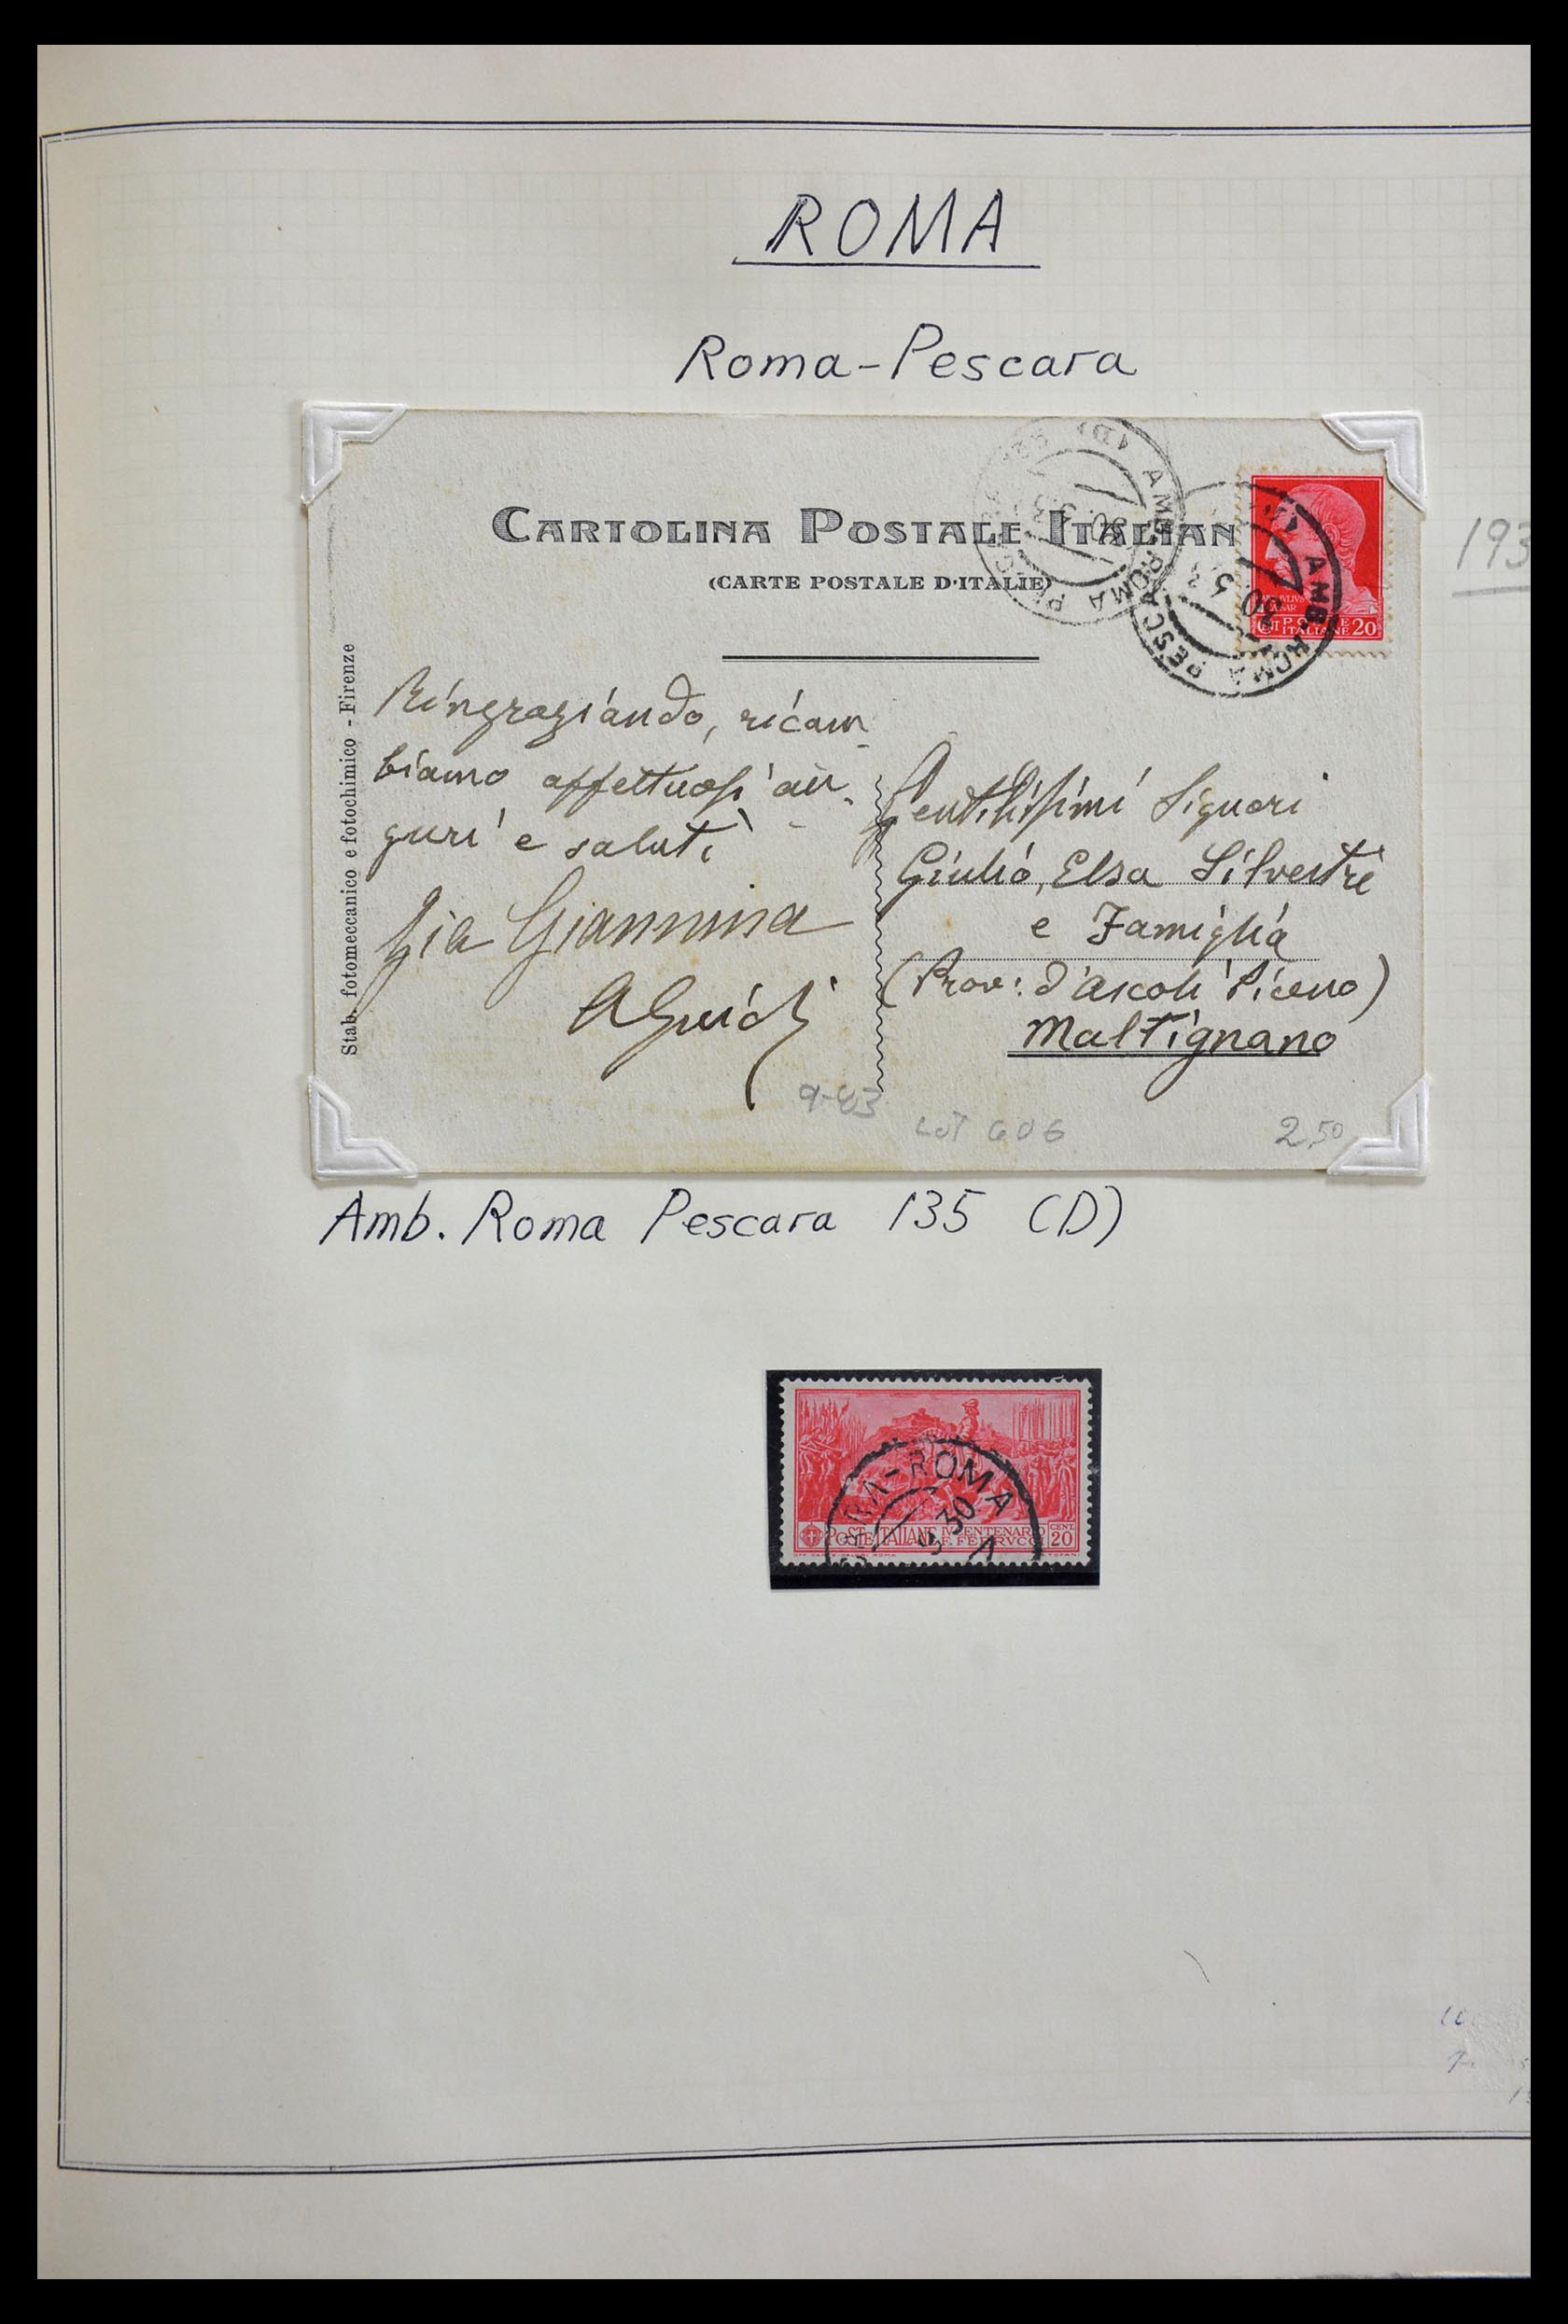 ROMA
Roma-Pescara
CARTOLINA POSTALE ITALIAN
(CARTE POSTALE D'ITALIE)
193
AMB. ROMA PESCARA
AMB. ROMA PESCARA
POSTE ITALIANE 20
Stab. fotomeccanico e fotochimico - Firenze
Ringraziando, ricam
biamo affettuosi au-
guri e saluti
Zia Giannina
AGuidi
Gentilissimi Signori
Giulio, Elsa Silvestri
e Famiglia
(Prov: d'Ascoli Piceno)
Maltignano
9-83
LOT 606
2,50
Amb. Roma Pescara 135 (D)
-ROMA
30
POSTE ITALIANE IV CENTENARIO F. FERRVCCI CENT. 20